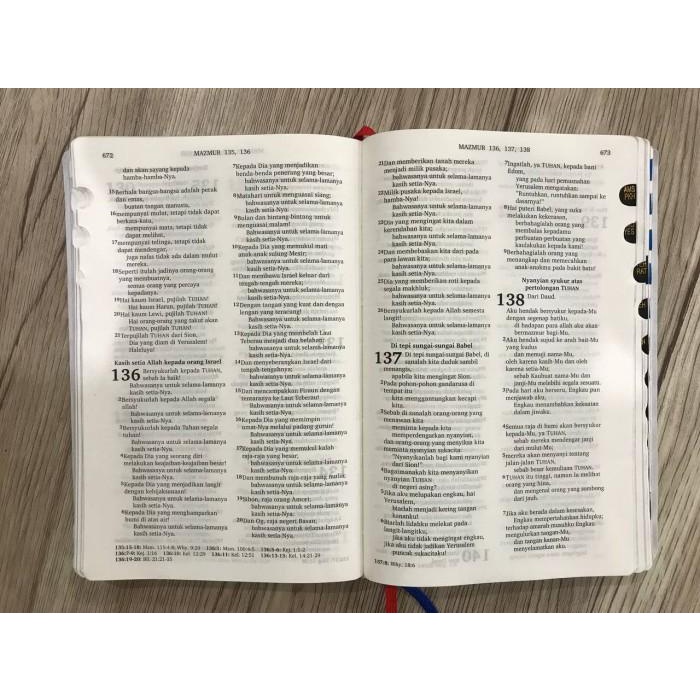 672
MAZMUR 135, 136
dan akan sayang kepada
hamba-hamba-Nya.
15Berhala bangsa-bangsa adalah perak
dan emas,
buatan tangan manusia,
16mempunyai mulut, tetapi tidak dapat
berkata-kata,
mempunyai mata, tetapi tidak
dapat melihat,
17mempunyai telinga, tetapi tidak
dapat mendengar,
juga nafas tidak ada dalam mulut
mereka.
18Seperti itulah jadinya orang-orang
yang membuatnya,
semua orang yang percaya
kepadanya.
19Hai kaum Israel, pujilah TUHAN!
Hai kaum Harun, pujilah TUHAN!
20Hai kaum Lewi, pujilah TUHAN!
Hai orang-orang yang takut akan
TUHAN, pujilah TUHAN!
21Terpujilah TUHAN dari Sion,
Dia yang diam di Yerusalem!
Haleluya!
Kasih setia Allah kepada orang Israel
136 Bersyukurlah kepada TUHAN,
sebab Ia baik!
Bahwasanya untuk selama-lamanya
kasih setia-Nya.
2Bersyukurlah kepada Allah segala
allah!
Bahwasanya untuk selama-lamanya
kasih setia-Nya.
3Bersyukurlah kepada Tuhan segala
tuhan!
Bahwasanya untuk selama-lamanya
kasih setia-Nya.
4Kepada Dia yang seorang diri
melakukan keajaiban-keajaiban besar!
Bahwasanya untuk selama-lamanya
kasih setia-Nya.
5Kepada Dia yang menjadikan langit
dengan kebijaksanaan!
Bahwasanya untuk selama-lamanya
kasih setia-Nya.
6Kepada Dia yang menghamparkan
bumi di atas air!
Bahwasanya untuk selama-lamanya
kasih setia-Nya.
7Kepada Dia yang menjadikan
benda-benda penerang yang besar;
bahwasanya untuk selama-lamanya
kasih setia-Nya.
8Matahari untuk menguasai siang;
bahwasanya untuk selama-lamanya
kasih setia-Nya.
9Bulan dan bintang-bintang untuk
menguasai malam!
Bahwasanya untuk selama-lamanya
kasih setia-Nya.
10Kepada Dia yang memukul mati
anak-anak sulung Mesir;
bahwasanya untuk selama-lamanya
kasih setia-Nya.
11Dan membawa Israel keluar dari
tengah-tengah mereka;
bahwasanya untuk selama-lamanya
kasih setia-Nya.
12Dengan tangan yang kuat dan dengan
lengan yang teracung!
Bahwasanya untuk selama-lamanya
kasih setia-Nya.
13Kepada Dia yang membelah Laut
Teberau menjadi dua belahan;
bahwasanya untuk selama-lamanya
kasih setia-Nya.
14Dan menyeberangkan Israel dari
tengah-tengahnya;
bahwasanya untuk selama-lamanya
kasih setia-Nya.
15Dan mencampakkan Firaun dengan
tentaranya ke Laut Teberau!
Bahwasanya untuk selama-lamanya
kasih setia-Nya.
16Kepada Dia yang memimpin
umat-Nya melalui padang gurun!
Bahwasanya untuk selama-lamanya
kasih setia-Nya.
17Kepada Dia yang memukul kalah
raja-raja yang besar;
bahwasanya untuk selama-lamanya
kasih setia-Nya.
18Dan membunuh raja-raja yang mulia;
bahwasanya untuk selama-lamanya
kasih setia-Nya.
19Sihon, raja orang Amori;
bahwasanya untuk selama-lamanya
kasih setia-Nya.
20Dan Og, raja negeri Basan;
bahwasanya untuk selama-lamanya
kasih setia-Nya.
135:15-18: Mzm. 115:4-8; Why. 9:20
136:5-6: Kej. 1:1-2
MAZMUR 136, 137, 138
673
21Dan memberikan tanah mereka
menjadi milik pusaka;
bahwasanya untuk selama-lamanya
kasih setia-Nya.
22Milik pusaka kepada Israel,
hamba-Nya!
Bahwasanya untuk selama-lamanya
kasih setia-Nya.
23Dia yang mengingat kita dalam
kerendahan kita;
bahwasanya untuk selama-lamanya
kasih setia-Nya.
24Dan membebaskan kita dari pada
para lawan kita;
bahwasanya untuk selama-lamanya
kasih setia-Nya.
25Dia yang memberikan roti kepada
segala makhluk;
bahwasanya untuk selama-lamanya
kasih setia-Nya.
26Bersyukurlah kepada Allah semesta
langit!
Bahwasanya untuk selama-lamanya
kasih setia-Nya.
Di tepi sungai-sungai Babel
137 Di tepi sungai-sungai Babel, di
sanalah kita duduk sambil
menangis,
apabila kita mengingat Sion.
2Pada pohon-pohon gandarusa di
tempat itu
kita menggantungkan kecapi
kita.
3Sebab di sanalah orang-orang yang
menawan kita
meminta kepada kita
memperdengarkan nyanyian,
dan orang-orang yang menyiksa kita
meminta nyanyian sukacita:
"Nyanyikanlah bagi kami nyanyian
dari Sion!"
4Bagaimanakah kita menyanyikan
nyanyian TUHAN
di negeri asing?
5Jika aku melupakan engkau, hai
Yerusalem,
biarlah menjadi kering tangan
kananku!
6Biarlah lidahku melekat pada
langit-langitku,
jika aku tidak mengingat engkau,
jika aku tidak jadikan Yerusalem
puncak sukacitaku!
7Ingatlah, ya TUHAN, kepada bani
Edom,
yang pada hari pemusnahan
Yerusalem mengatakan:
"Runtuhkan, runtuhkan sampai ke
dasarnya!"
8Hai puteri Babel, yang suka
melakukan kekerasan,
berbahagialah orang yang
membalas kepadamu
perbuatan-perbuatan yang
kaulakukan kepada kami!
9Berbahagialah orang yang
menangkap dan memecahkan
anak-anakmu pada bukit batu!
Nyanyian syukur atas
pertolongan TUHAN
138 Dari Daud.
Aku hendak bersyukur kepada-Mu
dengan segenap hatiku,
di hadapan para allah aku akan
bermazmur bagi-Mu.
2Aku hendak sujud ke arah bait-Mu
yang kudus
dan memuji nama-Mu,
oleh karena kasih-Mu dan oleh
karena setia-Mu;
sebab Kaubuat nama-Mu dan
janji-Mu melebihi segala sesuatu.
3Pada hari aku berseru, Engkau pun
menjawab aku,
Engkau menambahkan kekuatan
dalam jiwaku.
4Semua raja di bumi akan bersyukur
kepada-Mu, ya TUHAN,
sebab mereka mendengar janji
dari mulut-Mu;
5mereka akan menyanyi tentang
jalan-jalan TUHAN,
sebab besar kemuliaan TUHAN.
6TUHAN itu tinggi, namun Ia melihat
orang yang hina,
dan mengenal orang yang sombong
dari jauh.
7Jika aku berada dalam kesesakan,
Engkau mempertahankan hidupku;
terhadap amarah musuhku Engkau
mengulurkan tangan-Mu,
dan tangan kanan-Mu
menyelamatkan aku.
137:8: Why. 18:6
AMS
PKH
YES
RAT